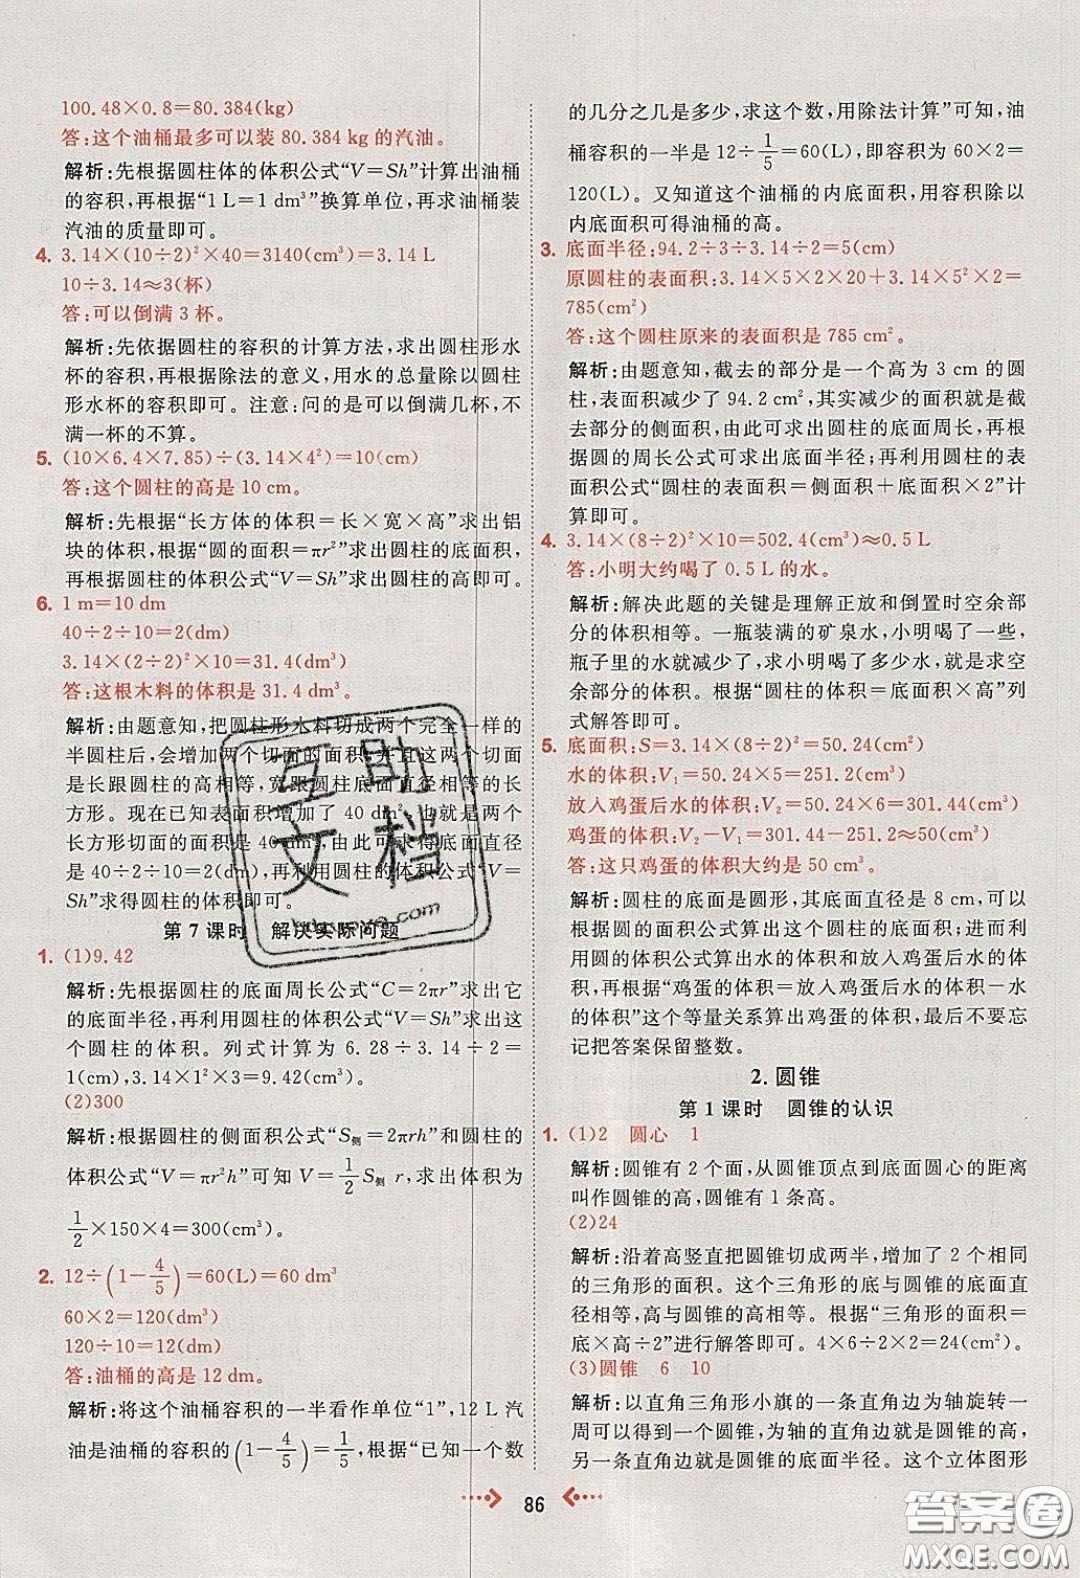 100.48×0.8=80.384(kg)
答:这个油桶最多可以装 80.384 kg 的汽油。
解析:先根据圆柱体的体积公式“V=Sh”计算出油桶
的容积,再根据“1 L=1 dm³”换算单位,再求油桶装
汽油的质量即可。
4. 3.14×(10÷2)²×40=3140(cm³)=3.14 L
10÷3.14≈3(杯)
答:可以倒满 3 杯。
解析:先依据圆柱的容积的计算方法,求出圆柱形水
杯的容积,再根据除法的意义,用水的总量除以圆柱
形水杯的容积即可。注意:问的是可以倒满几杯,不
满一杯的不算。
5. (10×6.4×7.85)÷(3.14×4²)=10(cm)
答:这个圆柱的高是 10 cm。
解析:先根据“长方体的体积=长×宽×高”求出铝
块的体积,再根据“圆的面积=πr²”求出圆柱的底面积,
再根据圆柱的体积公式“V=Sh”求出圆柱的高即可。
6. 1 m=10 dm
40÷2÷10=2(dm)
3.14×(2÷2)²×10=31.4(dm³)
答:这根木料的体积是 31.4 dm³。
解析:由题意知,把圆柱形木料切成两个完全一样的
半圆柱后,会增加两个切面的面积,并且这两个切面
是长跟圆柱的高相等,宽跟圆柱底面直径相等的长
方形。现在已知表面积增加了 40 dm²,也就是两个
长方形切面的面积是 40 dm²,所以圆柱的底面直径是
40÷2÷10=2(dm),再利用圆柱的体积公式“V=
Sh”求得圆柱的体积即可。
第 7 课时 解决实际问题
1. (1)9.42
解析:先根据圆柱的底面周长公式“C=2πr”求出它
的底面半径,再利用圆柱的体积公式“V=Sh”求出这
个圆柱的体积。列式计算为 6.28÷3.14÷2=
1(cm),3.14×1²×3=9.42(cm³)。
(2)300
解析:根据圆柱的侧面积公式“S侧=2πrh”和圆柱的
体积公式“V=πr²h”可知 V=1/2 S侧 r,求出体积为
1/2×150×4=300(cm³)。
2. 12÷(1-4/5)=60(L)=60 dm³
60×2=120(dm³)
120÷10=12(dm)
答:油桶的高是 12 dm。
解析:将这个油桶容积的一半看作单位“1”,12 L 汽
油是油桶的容积的(1-4/5)=1/5,根据“已知一个数
的几分之几是多少,求这个数,用除法计算”可知,油
桶容积的一半是 12÷1/5=60(L),即容积为 60×2=
120(L)。又知道这个油桶的内底面积,用容积除以
内底面积可得油桶的高。
3. 底面半径:94.2÷3÷3.14÷2=5(cm)
原圆柱的表面积:3.14×5×2×20+3.14×5²×2=
785(cm²)
答:这个圆柱原来的表面积是 785 cm²。
解析:由题意知,截去的部分是一个高为 3 cm 的圆
柱,表面积减少了 94.2 cm²,其实减少的面积就是截
去部分的侧面积,由此可求出圆柱的底面周长,再根
据圆的周长公式可求出底面半径;再利用圆柱的表
面积公式“圆柱的表面积=侧面积+底面积×2”计
算即可。
4. 3.14×(8÷2)²×10=502.4(cm³)≈0.5 L
答:小明大约喝了 0.5 L 的水。
解析:解决此题的关键是理解正放和倒置时空余部
分的体积相等。一瓶装满的矿泉水,小明喝了一些,
瓶子里的水就减少了。求小明喝了多少水,就是求空
余部分的体积。根据“圆柱的体积=底面积×高”列
式解答即可。
5. 底面积:S=3.14×(8÷2)²=50.24(cm²)
水的体积:V₁=50.24×5=251.2(cm³)
放入鸡蛋后水的体积:V₂=50.24×6=301.44(cm³)
鸡蛋的体积:V₂-V₁=301.44-251.2≈50(cm³)
答:这只鸡蛋的体积大约是 50 cm³。
解析:圆柱的底面是圆形,其底面直径是 8 cm,可以
根据圆的面积公式求出圆柱的底面积;进而利
用圆的体积公式算出水的体积和放入鸡蛋后水的体
积,再根据“鸡蛋的体积=放入鸡蛋后水的体积-水
的体积”这个等量关系算出鸡蛋的体积,最后不要忘
记把答案保留整数。
2. 圆锥
第 1 课时 圆锥的认识
1. (1)2 圆心 1
解析:圆锥有 2 个面,从圆锥顶点到底面圆心的距离
叫作圆锥的高,圆锥有 1 条高。
(2)24
解析:沿着高竖直把圆锥切成两半,增加了 2 个相同
的三角形的面积。这个三角形的底与圆锥的底面直
径相等,高与圆锥的高相等。根据“三角形的面积=
底×高÷2”进行解答即可。4×6÷2×2=24(cm²)。
(3)圆锥 6 10
解析:以直角三角形小旗的一条直角边为轴旋转一
周可以得到一个圆锥,为轴的直角边就是圆锥的高,
另一条直角边就是圆锥的底面半径。这个立体图形
86
互助文档
答案圈
MXQE.COM